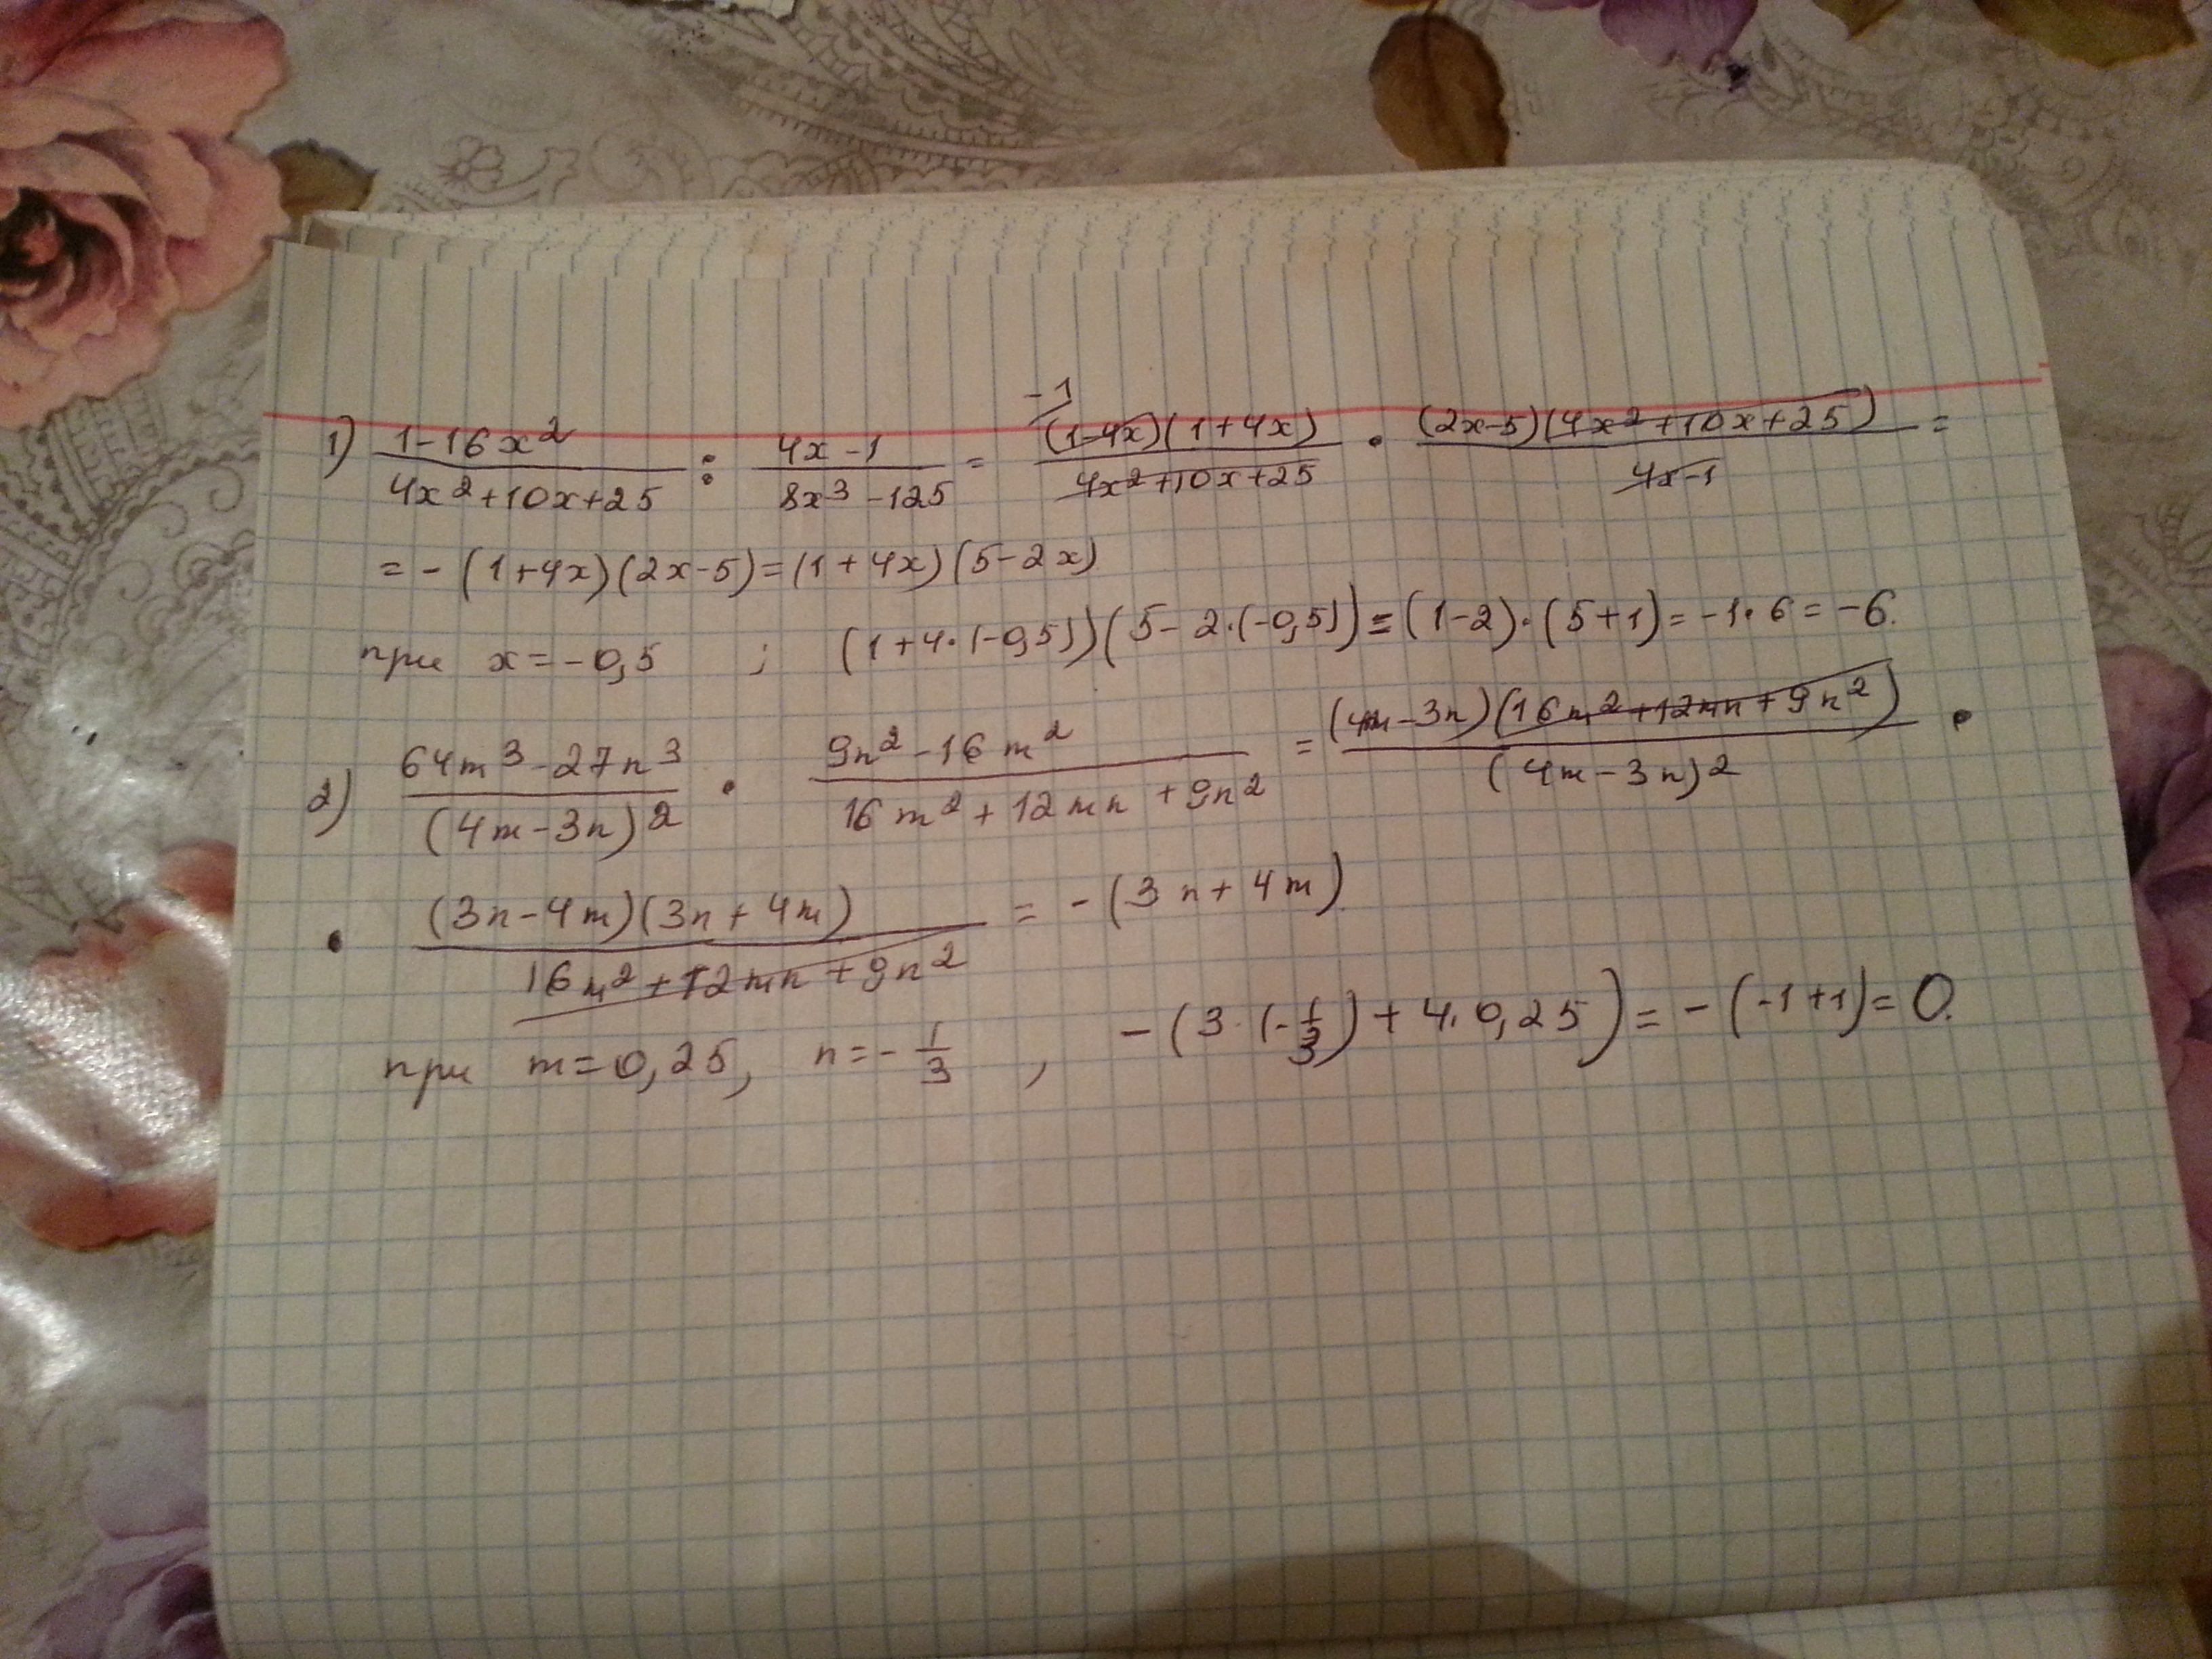 1) (1-16x²)/(4x²+10x+25) : (4x-1)/(8x³-125) = -1 (1-4x)(1+4x)/(4x²+10x+25) · (2x-5)(4x²+10x+25)/(4x-1) =
= -(1+4x)(2x-5)=(1+4x)(5-2x)
при x=-0,5 ; (1+4·(-0,5))(5-2·(-0,5))=(1-2)·(5+1)=-1·6=-6.
2) (64m³-27n³)/(4m-3n)² · (9n²-16m²)/(16m²+12mn+9n²) = (4m-3n)(16m²+12mn+9n²)/(4m-3n)² ·
· (3n-4m)(3n+4m)/(16m²+12mn+9n²) = -(3n+4m)
при m=0,25, n=-1/3 , -(3·(-1/3)+4·0,25)=-(-1+1)=0.